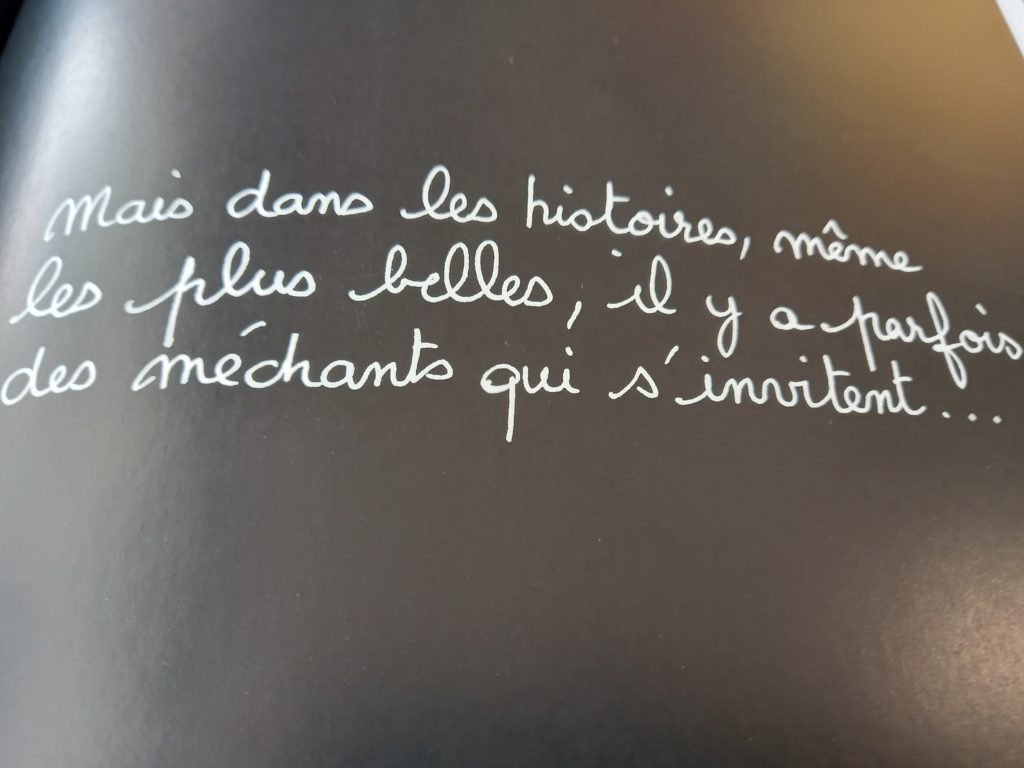 Mais dans les histoires, même
les plus belles, il y a parfois
des méchants qui s'invitent...